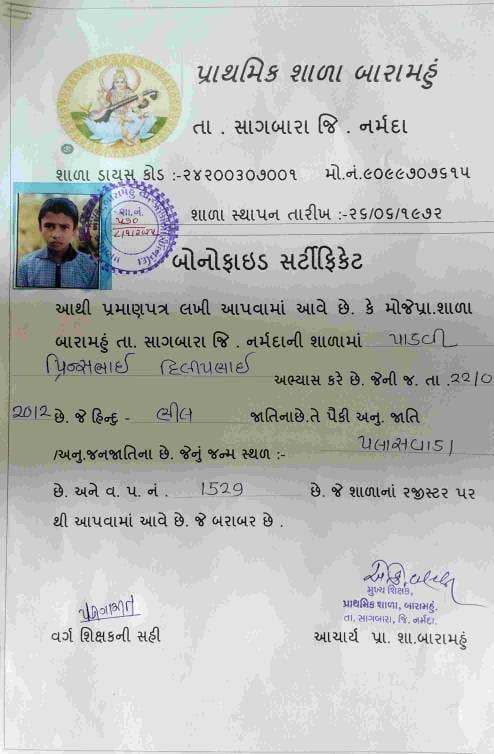 પ્રાથમિક શાળા બારામહું
તા . સાગબારા જિ . નર્મદા
શાળા ડાયસ કોડ :-૨૪૨૦૦૩૦૭૦૦૧ મો.નં.૯૦૯૯૭૦૭૬૧૫
શાળા સ્થાપન તારીખ :-૨૬/૦૬/૧૯૭૨
શા.નં.
બોનોફાઇડ સર્ટીફિકેટ
આથી પ્રમાણપત્ર લખી આપવામાં આવે છે. કે મોજેપ્રા.શાળા
બારામહું તા. સાગબારા જિ . નર્મદાની શાળામાં પાડવી
પ્રિન્સભાઈ દિલીપભાઈ
અભ્યાસ કરે છે. જેની જ. તા .22/0
2012 છે. જે હિન્દુ - ભીલ જાતિનાછે.તે પૈકી અનુ. જાતિ
/અનુ.જનજાતિના છે. જેનું જન્મ સ્થળ :- પલાસવાડા
છે. અને વ. પ. નં . 1529 છે. જે શાળાનાં રજીસ્ટર પર
થી આપવામાં આવે છે. જે બરાબર છે .
મુખ્ય શિક્ષક,
પ્રાથમિક શાળા, બારામહું.
તા. સાગબારા, જિ. નર્મદા.
વર્ગ શિક્ષકની સહી આચાર્ય પ્રા. શા.બારામહું